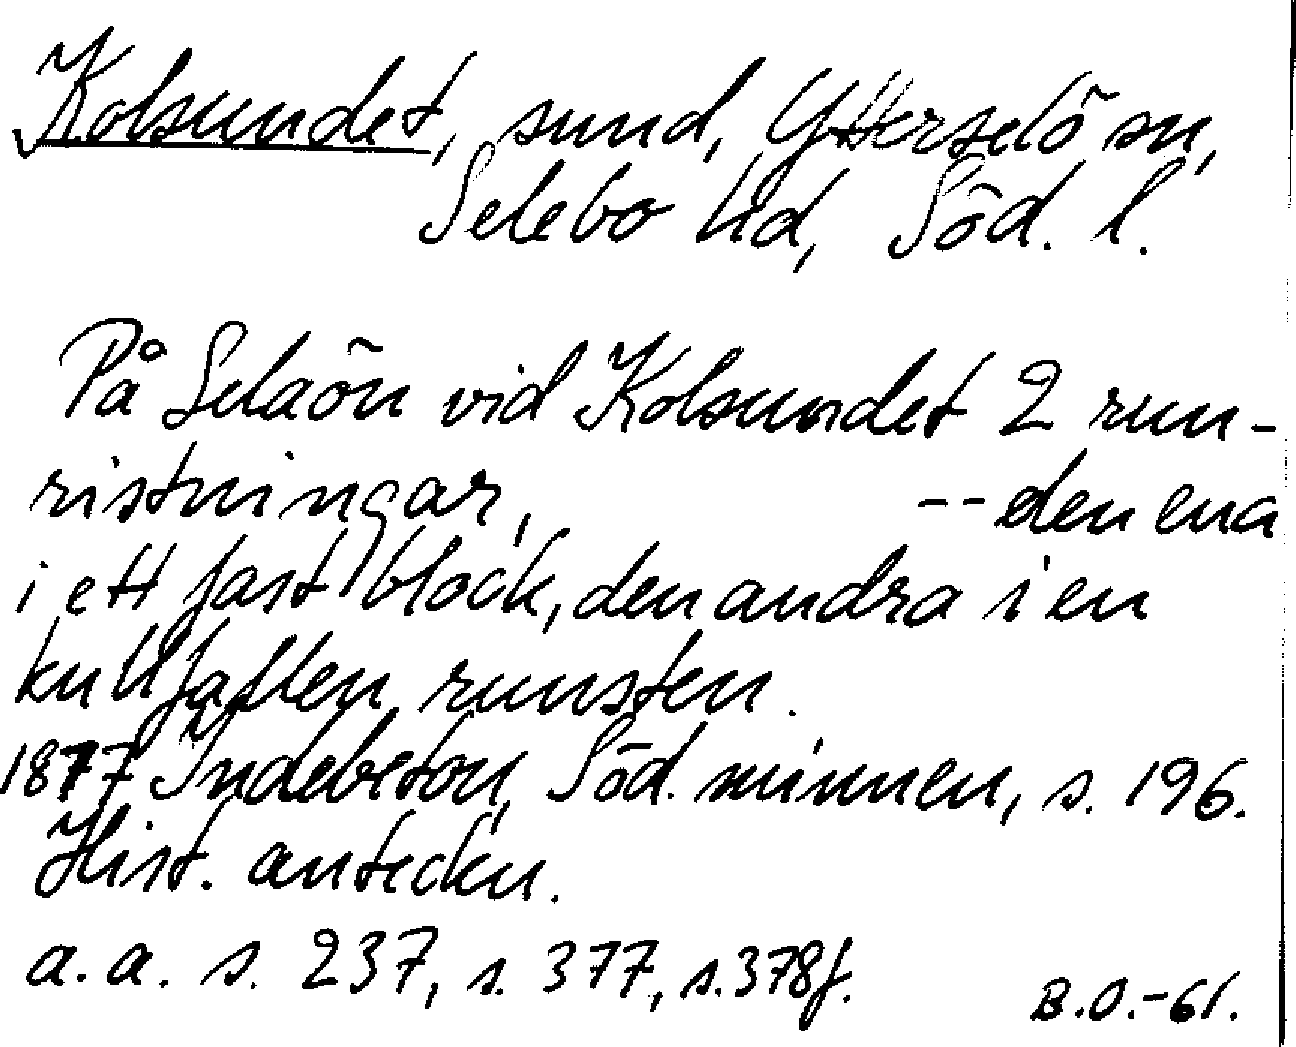 Kolsundet, sund, Ytterselö sn,
Selebo hd, Söd. l.
På Selaön vid Kolsundet 2 run-
ristningar, -- den ena
i ett fast block, den andra i en
kullfallen runsten.
1877 Indebetou, Söd. minnen, s. 196.
Hist. anteckn.
a.a. s. 237, s. 377, s. 378f.
B.O.-61.